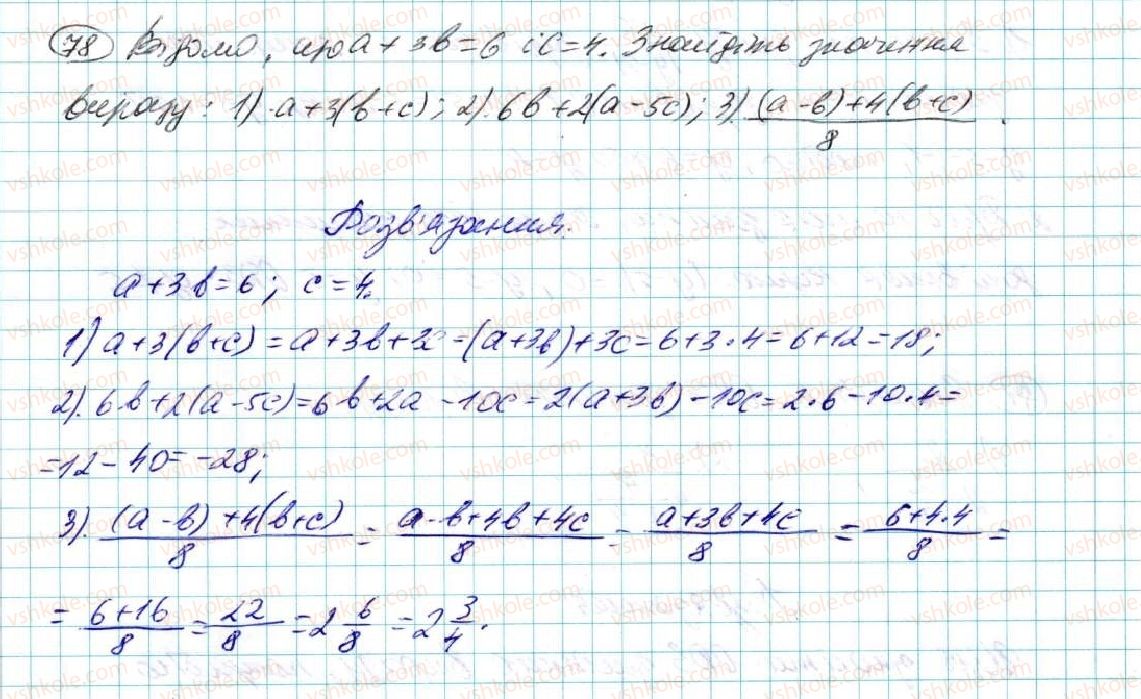 78 Відомо, що a + 3b = 6 і c = 4. Знайдіть значення
виразу: 1) a + 3(b + c); 2) 6b + 2(a - 5c); 3) \frac{(a - b) + 4(b + c)}{8}.
Розв'язання.
a + 3b = 6; c = 4.
1) a + 3(b + c) = a + 3b + 3c = (a + 3b) + 3c = 6 + 3 · 4 = 6 + 12 = 18;
2). 6b + 2(a - 5c) = 6b + 2a - 10c = 2(a + 3b) - 10c = 2 · 6 - 10 · 4 =
= 12 - 40 = -28;
3). \frac{(a - b) + 4(b + c)}{8} = \frac{a - b + 4b + 4c}{8} = \frac{a + 3b + 4c}{8} = \frac{6 + 4 · 4}{8} =
= \frac{6 + 16}{8} = \frac{22}{8} = 2\frac{6}{8} = 2\frac{3}{4}.